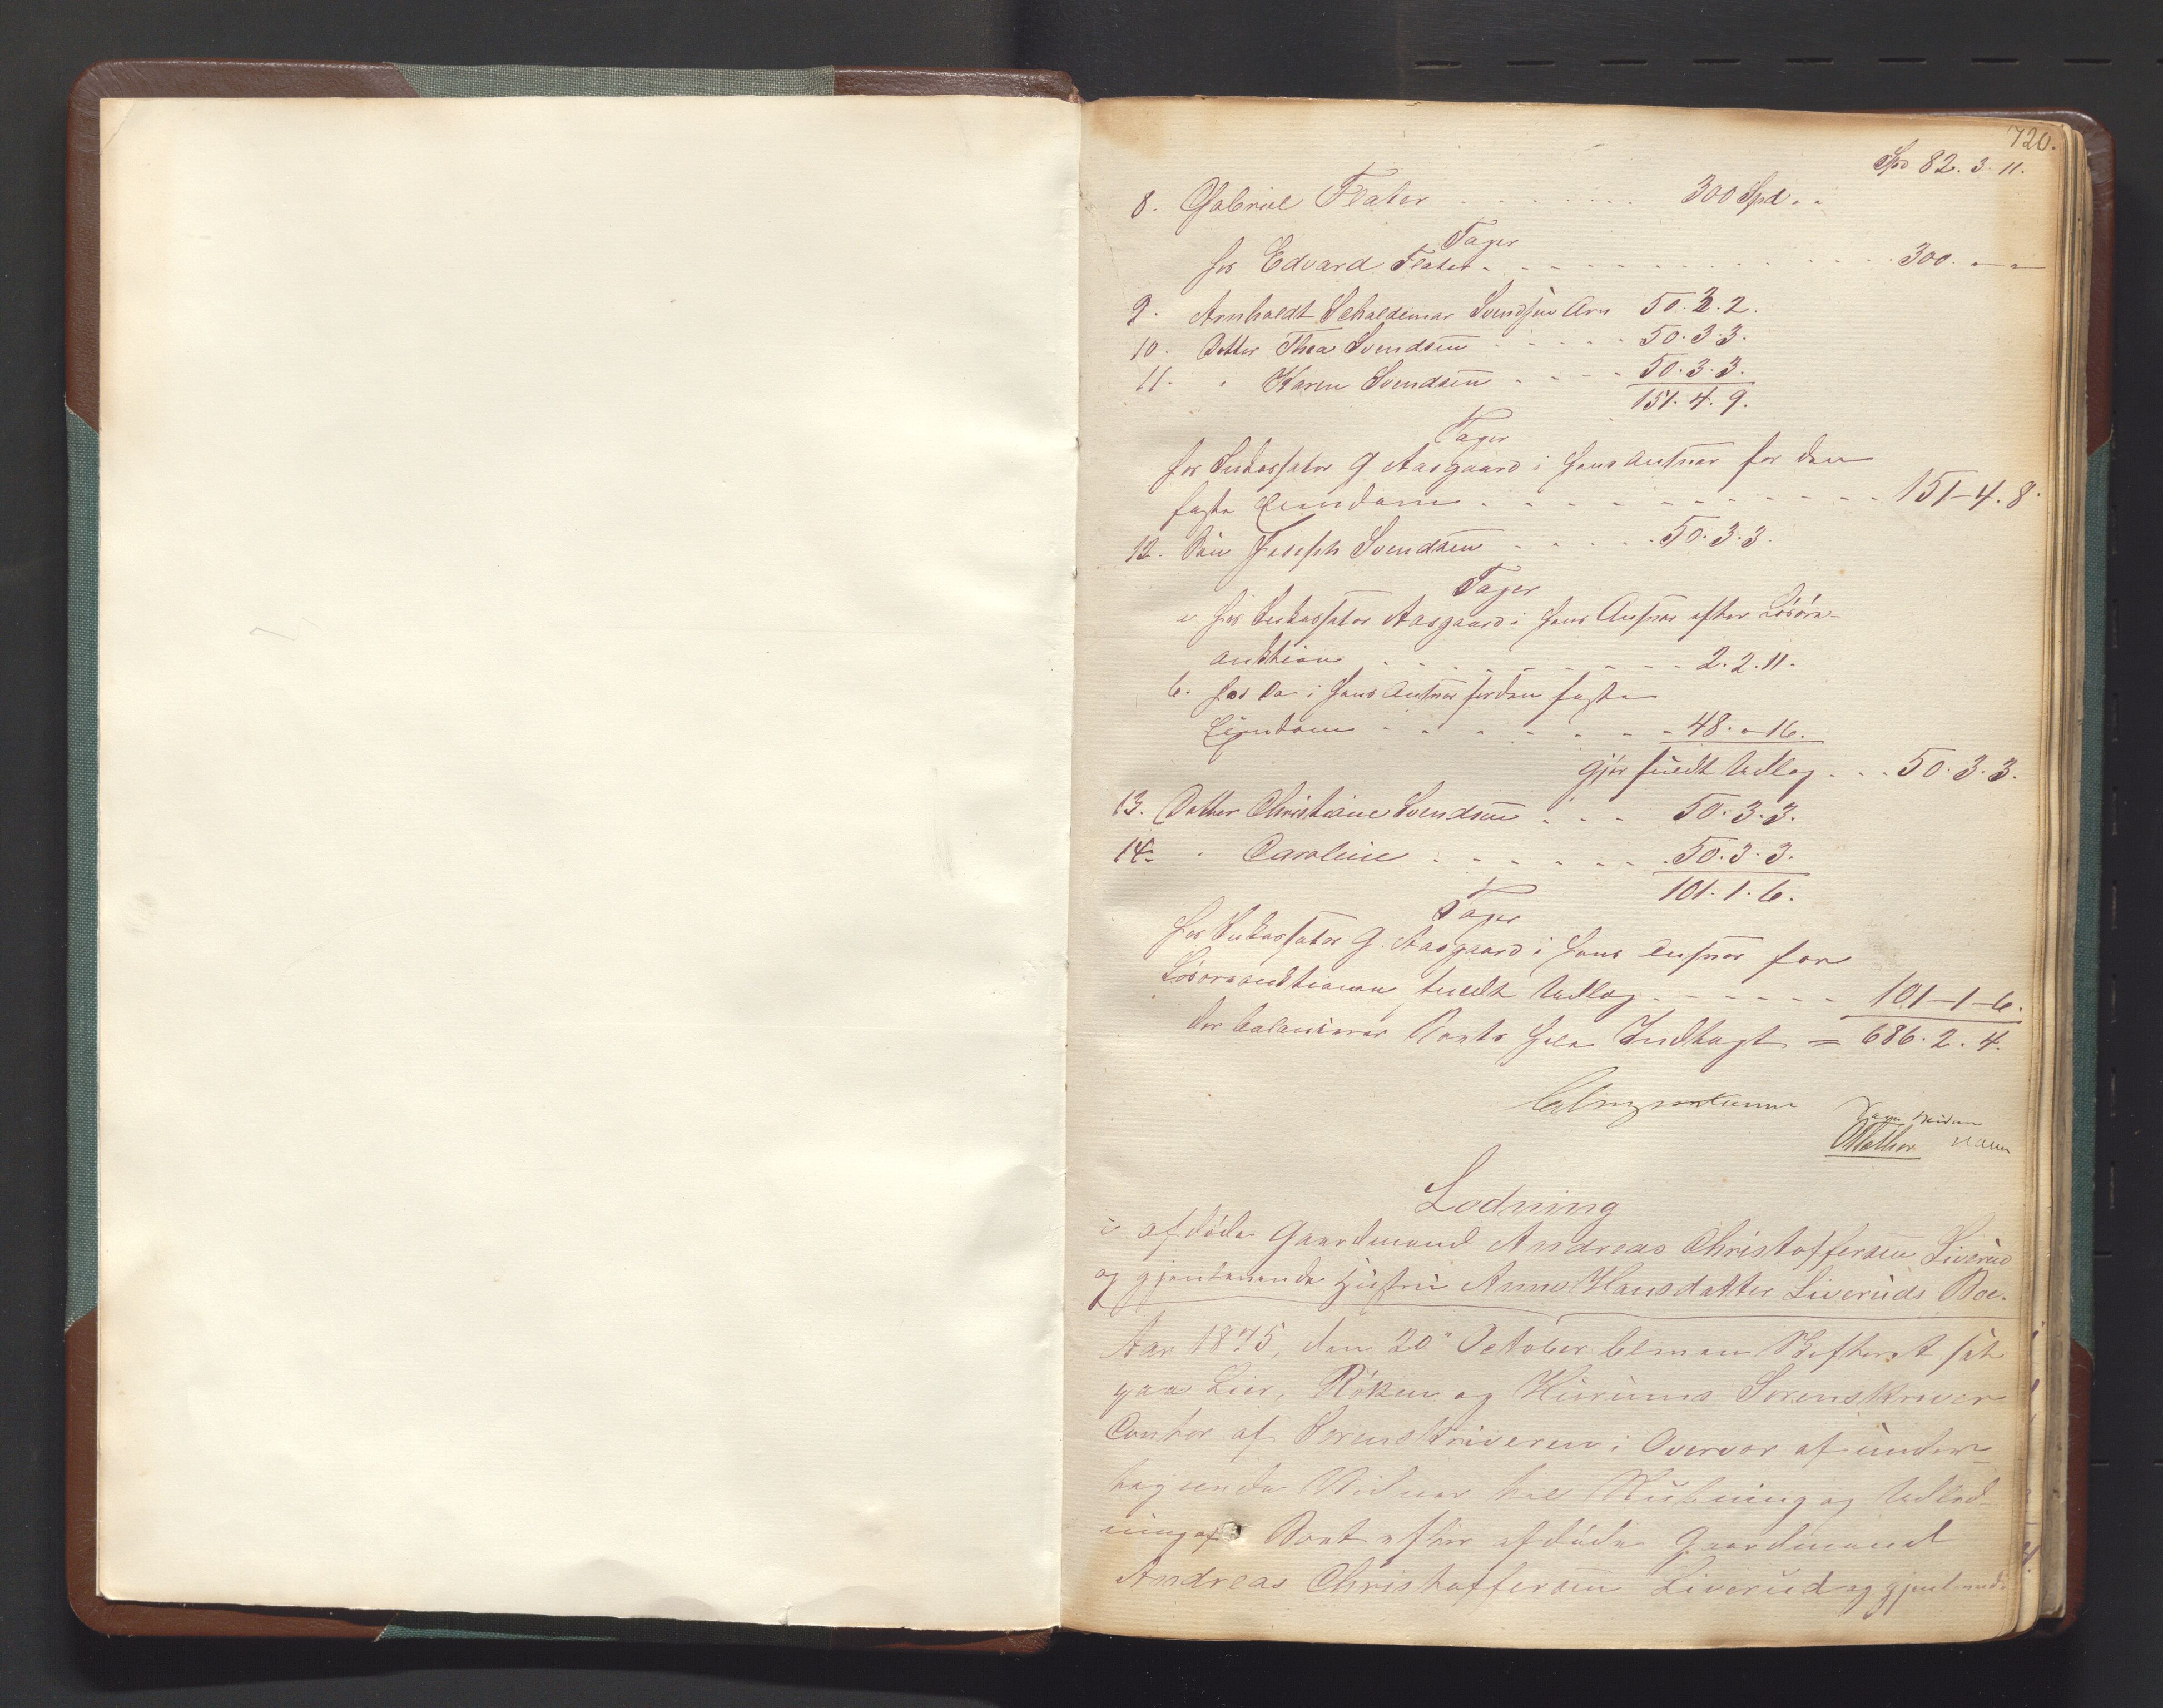 720.
Spd 82. 3. 11.
8. Gabriel Flater - - - - - - 300 Spd. "
Tager
hos Edvard Flater - - - - - - 300. " "
9. Arnholdt Schaldemar Svendsens Arv 50. 3. 2.
10. Datter Thea Svendsen - - - - 50. 3. 3.
11. " Karen Svendsen - - - - 50. 3. 3.
151. 4. 9.
Tager
hos Inkassator G. Aasgaard i hans Ansvar for den
faste Eiendom - - - - - - 151-4. 8.
12. Søn Joseph Svendsen - - - - 50. 3. 3.
Tager
a. hos Inkassator Aasgaard i hans Ansvar efter Løsøre-
auktion - - - - - - 2. 2. 11.
b. hos Do i hans Ansvar for den faste
Eiendom - - - - - - 48. " 16.
Gjør fuldt Udlæg - - - 50. 3. 3.
13. Datter Christiane Svendsen - - - 50. 3. 3.
14. " Caroline - - - - - - 50. 3. 3.
101. 1. 6.
Tager
hos Inkassator G. Aasgaard i hans Ansvar for
Løsøreauktionen fuldt Udlæg - - - - - 101-1-6.
der balancerer Boets hele Indtægt = 686. 2. 4.
Lodning
i afdøde Gaardmand Andreas Christoffersen Liverud
og gjenlevende Hustru Anne Hansdatter Liveruds Boe.
Aar 1875, den 20" October blev en Skifteret sat
paa Lier, Røken og Hurums Sorenskriver
Contor af Sorenskriveren i Overvær af under-
tegnede Vidner til Slutning og Udlod-
ning af Boet efter afdøde Gaardmand
Andreas Christoffersen Liverud og gjenlevende